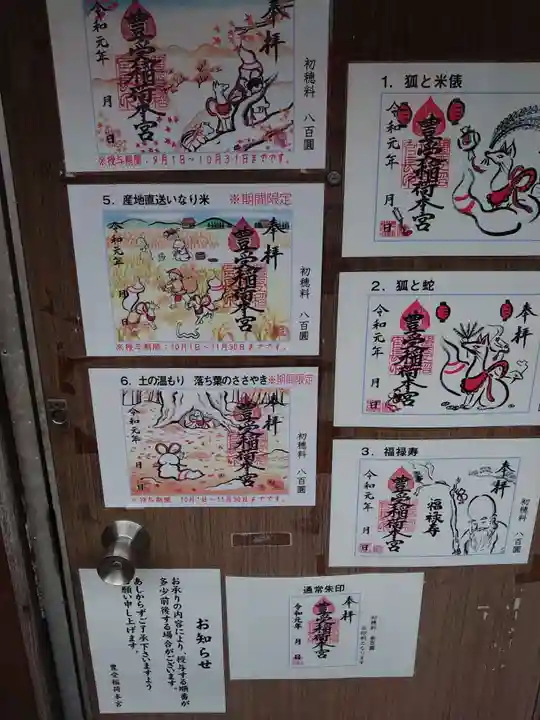 奉拝
豊受稲荷本宮
令和元年
月
日
初穂料 八百圓
※授与期間:9月1日~10月31日までです。
5. 産地直送いなり米 ※期間限定
奉拝
豊受稲荷本宮
令和元年
月
日
初穂料 八百圓
※授与期間:10月1日~11月30日までです。
6. 土の温もり 落ち葉のささやき ※期間限定
奉拝
豊受稲荷本宮
令和元年
月
日
初穂料 八百圓
※授与期間:10月1日~11月30日までです。
1. 狐と米俵
奉拝
豊受稲荷本宮
令和元年
月
日
2. 狐と蛇
奉拝
豊受稲荷本宮
令和元年
月
日
3. 福禄寿
奉拝
福禄寿
豊受稲荷本宮
令和元年
月
日
初穂料 八百圓
お知らせ
お承りの内容により、授与する順番が
多少前後する場合がございます。
あしからずご了承下さいますよう
お願い申し上げます。
豊受稲荷本宮
通常朱印
奉拝
豊受稲荷本宮
令和元年
月
日